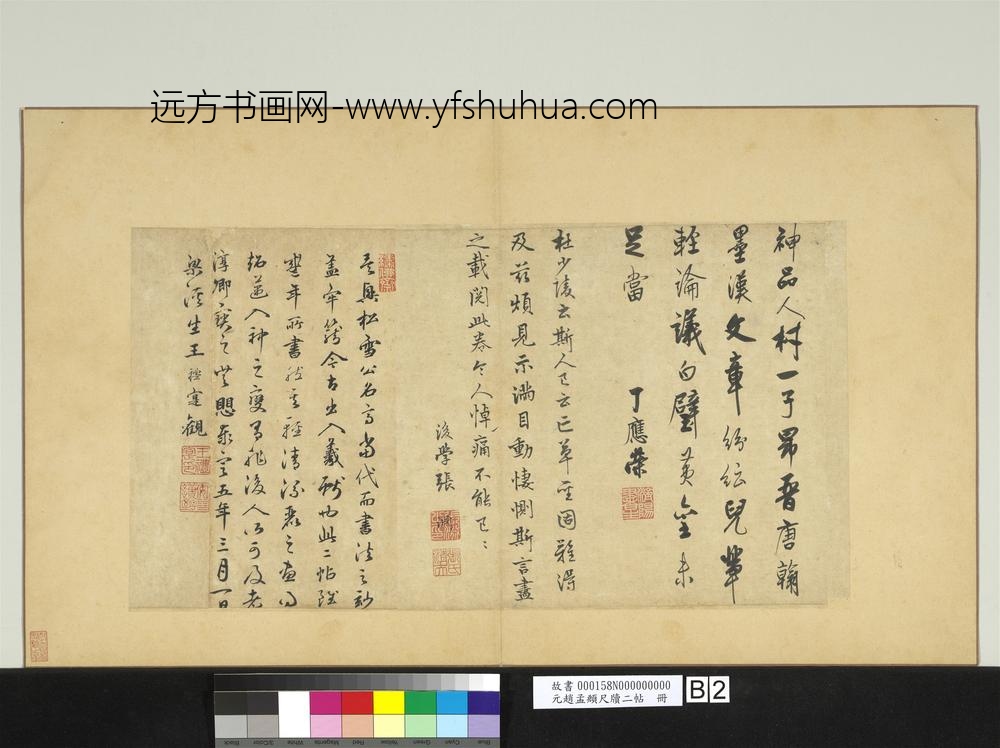 远方书画网-www.yfshuhua.com
神品人材一子昂晉唐翰
墨漢文章紛紜兒輩
輕論議白璧黃金未
足當
丁應榮
杜少陵云斯人已云亡草聖固難得
及茲煩見示滿目動悽惻斯言盡
之載閱此卷令人悼痛不能已
後學張
吳興松雪公名高當代而書法之妙
蓋牢籠今古出入羲獻也此二帖雖
年所書然其輕清流麗之
入神之變有非後人所可及者
淳卿寶之泰定五年三月一日
梁溪生王觀
故書 000158N000000000
元趙孟頫尺牘二帖 冊
B 2
Black
3/Color
White
Magenta
Red
Yellow
Green
Cyan
Blue